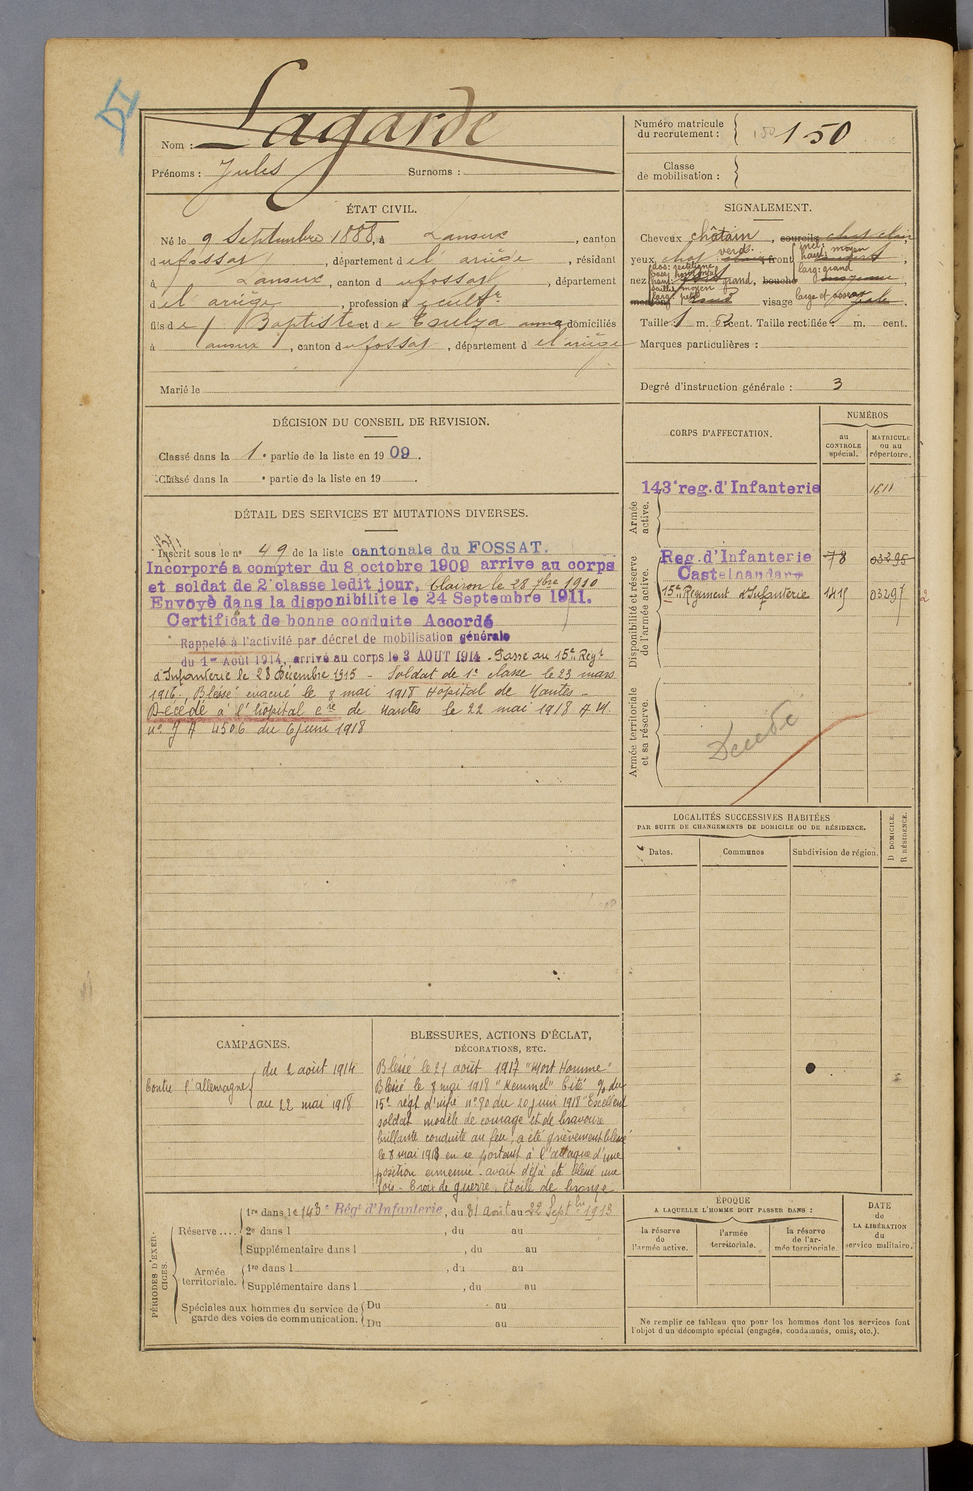 Lagarde
Nom :
Prénoms : Jules Surnoms :
Numéro matricule
du recrutement : 150
Classe
de mobilisation :
ÉTAT CIVIL.
Né le 9 Septembre 1888, à Lanoux, canton
du fossat, département de l'ariège, résidant
à Lanoux, canton du fossat, département
de l'ariège, profession d cultr
fils de Baptiste et de domiciliés
à, canton du fossat, département de l'ariège
Marié le
SIGNALEMENT.
Cheveux châtain, sourcils chat clair,
yeux verds. front haut: moyen
nez grand, bouche moyenne
visage
Taille 1 m. cent. Taille rectifiée : m. cent.
Marques particulières :
Degré d'instruction générale : 3
DÉCISION DU CONSEIL DE REVISION.
Classé dans la 1e partie de la liste en 1909.
Classé dans la e partie de la liste en 19 .
CORPS D'AFFECTATION.
NUMÉROS
au
CONTRÔLE
spécial.
MATRICULE
ou au
répertoire.
Armée
active.
143e reg. d'Infanterie 1611
Disponibilité et réserve
de l'armée active.
Reg. d'Infanterie 78 03295
Castelnaudary
15e Régiment d'Infanterie 03297
Armée territoriale
et sa réserve.
Décédé
DÉTAIL DES SERVICES ET MUTATIONS DIVERSES.
Inscrit sous le n° 49 de la liste cantonale du FOSSAT.
Incorporé a compter du 8 octobre 1909 arrive au corps
et soldat de 2e classe ledit jour. Clairon le 28 7bre 1910
Envoyé dans la disponibilité le 24 Septembre 1911.
Certificat de bonne conduite Accordé
Rappelé à l'activité par décret de mobilisation générale
du 1er Août 1914, arrivé au corps le 3 AOUT 1914. Passé au 15e Regt
d'Infanterie le 28 Décembre 1915 - Soldat de 1e classe le 23 mars
1916. Blessé évacué le 8 mai 1918 Hôpital de Nantes -
Décédé à l'hôpital cre de Nantes le 22 mai 1918 A.M.
n° J A 4506 du 6 juin 1918
LOCALITÉS SUCCESSIVES HABITÉES
PAR SUITE DE CHANGEMENTS DE DOMICILE OU DE RÉSIDENCE.
Dates.
Communes
Subdivision de région.
D DOMICILE.
R RÉSIDENCE.
CAMPAGNES.
Contre l'allemagne
du 2 août 1914
au 22 mai 1918
BLESSURES, ACTIONS D'ÉCLAT,
DÉCORATIONS, ETC.
Blessé le 21 août 1917 "Mort Homme"
Blessé le 8 mai 1918 "Kemmel" Cité % du
15e régt d'infie n° 90 du 20 juin 1918 "Excellent
soldat modèle de courage et de bravoure
brillante conduite au feu, a été grièvement blessé
le 8 mai 1918 en se portant à l'attaque d'une
position ennemie. avait déjà été blessé une
fois - Croix de guerre, étoile de bronze
PÉRIODES D'EXERCICES.
Réserve....
1re dans le 143e Régt d'Infanterie, du 31 août au 22 Septbre 1913
2e dans l , du au
Supplémentaire dans l , du au
Armée
territoriale.
1re dans l , du au
Supplémentaire dans l , du au
Spéciales aux hommes du service de
garde des voies de communication.
Du au
Du au
ÉPOQUE
A LAQUELLE L'HOMME DOIT PASSER DANS :
la réserve
de
l'armée active.
l'armée
territoriale.
la réserve
de l'ar-
mée territoriale.
DATE
de
LA LIBÉRATION
du
service militaire.
Ne remplir ce tableau que pour les hommes dont les services font
l'objet d'un décompte spécial (engagés, condamnés, omis, etc.).